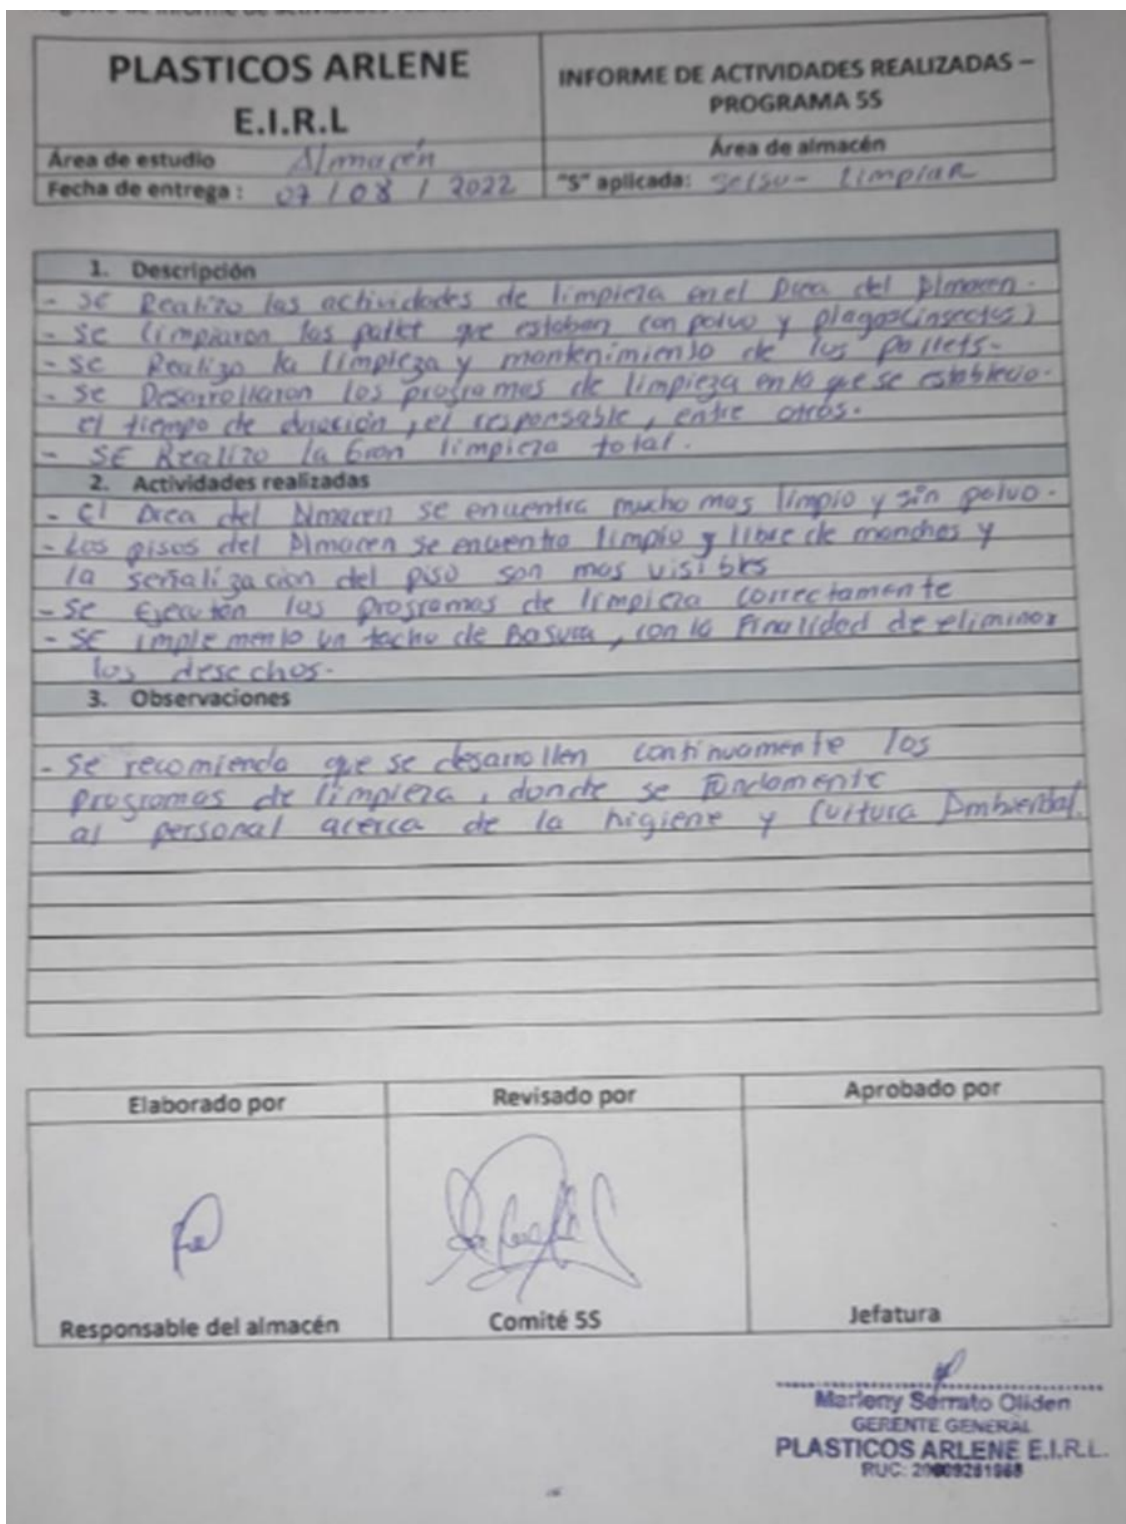 PLASTICOS ARLENE
E.I.R.L
INFORME DE ACTIVIDADES REALIZADAS –
PROGRAMA 5S
Área de estudio Almacén
Área de almacén
Fecha de entrega : 07 / 08 / 2022
"S" aplicada: Seisu - Limpiar
1. Descripción
- Se Realizo las actividades de limpieza en el Area del Almacen.
- Se limpiaron los pallet que estaban con polvo y plagas (insectos)
- Se Realizo la limpieza y mantenimiento de los pallets.
- Se Desarrollaron los programas de limpieza en la que se establecio.
el tiempo de duración, el responsable, entre otros.
- SE Realizo la Gran limpieza total.
2. Actividades realizadas
- El Area del Almacen se encuentra mucho mas limpio y sin polvo.
- Los pisos del Almacen se encuentra limpio y libre de manchas y
la señalizacion del piso son mas visibles
- Se Ejecutan los programas de limpieza correctamente
- SE implemento un tacho de Basura, con la Finalidad de eliminar
los desechos.
3. Observaciones
- Se recomienda que se desarrollen continuamente los
programas de limpieza, donde se Fundamente
al personal acerca de la higiene y Cultura Ambiental.
Elaborado por
Revisado por
Aprobado por
Responsable del almacén
Comité 5S
Jefatura
Marleny Serrato Oliden
GERENTE GENERAL
PLASTICOS ARLENE E.I.R.L.
RUC: